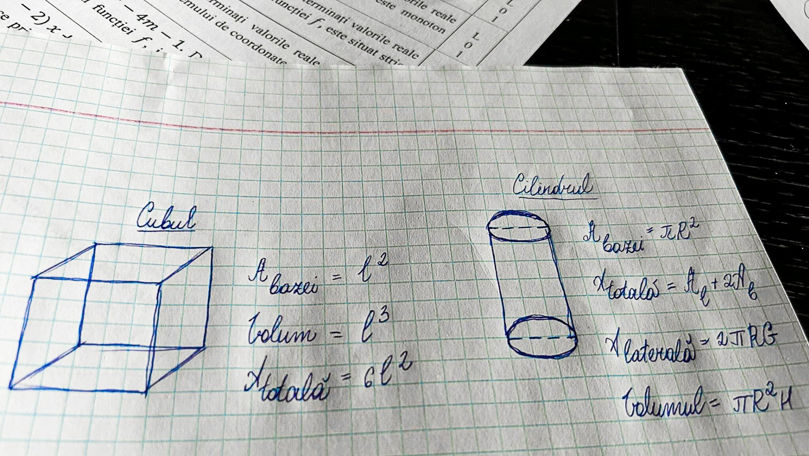 - 2) x
- 4m - 1.
funcției f,
terminați valorile reale
mului de coordonate
terminați valorile reale
funcției f, este situat stri
valorile reale
este monoton
L
O
L
O
Cubul
A bazei = l²
Volum = l³
A totală = 6l²
Cilindrul
A bazei = πR²
A totală = A l + 2A b
A laterală = 2πRG
Volumul = πR²H